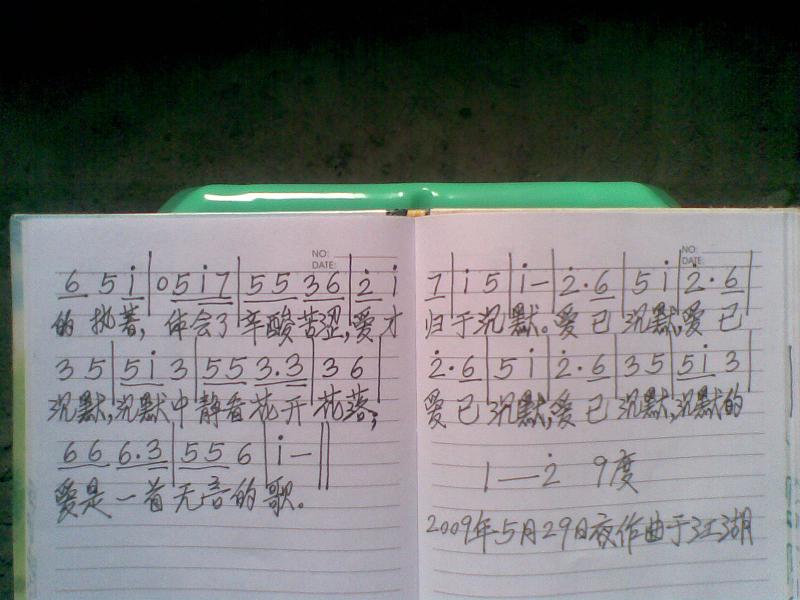 NO:
DATE:
6 5 i | 0 5 i 7 | 5 5 3 6 | 2̇ i
的执著,体会了辛酸苦涩,爱才
3 5 | 5 i 3 | 5 5 3.3 | 3 6 |
沉默,沉默中静看花开花落;
6 6 6.3 | 5 5 6 | i – ‖
爱是一首无言的歌。
NO:
DATE:
7 | i 5 | i – | 2̇.6 | 5 i | 2̇.6
归于沉默。爱已沉默,爱已
2̇.6 | 5 i | 2̇.6 | 3 5 | 5 i 3
爱已沉默,爱已沉默,沉默的
1 — 2̇ 9度
2009年5月29日夜作曲于江湖